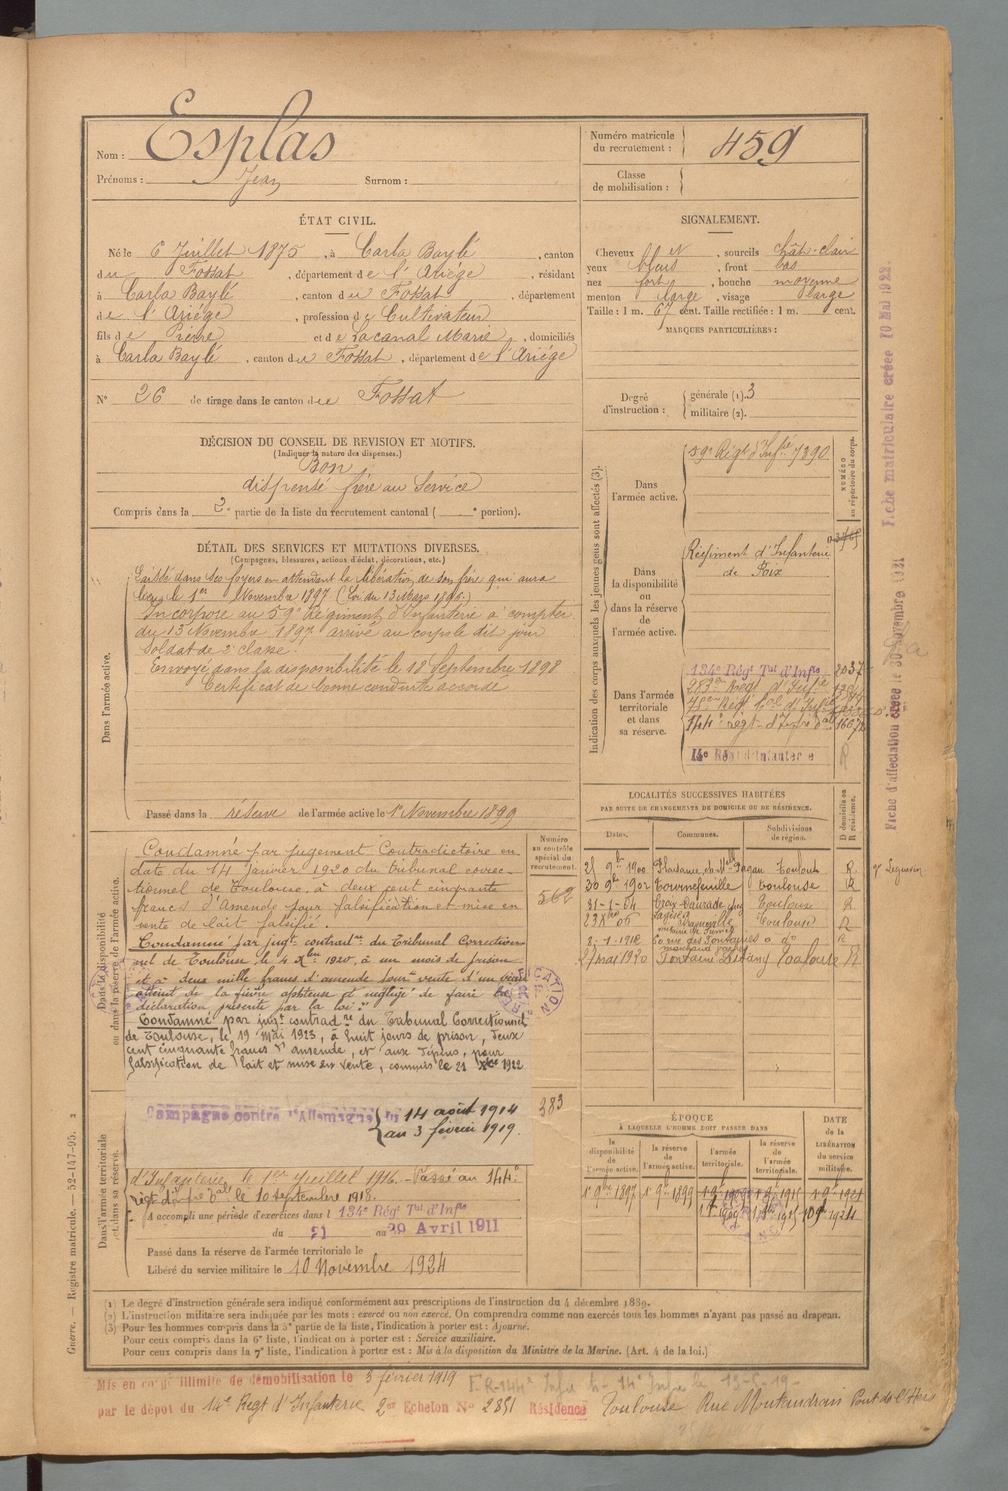 Nom : Esplas
Prénoms : Jean Surnom :
Numéro matricule du recrutement : 459
Classe de mobilisation :
ÉTAT CIVIL.
Né le 6 Juillet 1875, à Carla Baylé, canton
du Fossat, département de l'Ariège, résidant
à Carla Baylé, canton du Fossat, département
de l'Ariége, profession de Cultivateur
fils de Pierre et de Lacanal Marie, domiciliés
à Carla Baylé, canton du Fossat, département de l'Ariége
N° 26 de tirage dans le canton de Fossat
DÉCISION DU CONSEIL DE REVISION ET MOTIFS.
(Indiquer la nature des dispenses.)
Bon
dispensé frère au Service
Compris dans la 2e partie de la liste du recrutement cantonal ( e portion).
SIGNALEMENT.
Cheveux , sourcils chât-clair
yeux bleus, front bas
nez fort, bouche moyenne
menton large, visage large
Taille : 1 m. 67 cent. Taille rectifiée : 1 m. cent.
MARQUES PARTICULIÈRES :
Degré d'instruction :
générale (1). 3
militaire (2).
DÉTAIL DES SERVICES ET MUTATIONS DIVERSES.
(Campagnes, blessures, actions d'éclat, décorations, etc.)
Dans l'armée active.
Laissé dans ses foyers en attendant la libération de son frère qui aura
lieu le 1er Novembre 1897 (Loi du 13 Mars 1896.)
Incorporé au 59e Régiment d'Infanterie à compter
du 13 Novembre 1897 arrivé au corps le dit jour
Soldat de 2e classe.
Envoyé dans la disponibilité le 18 Septembre 1898
Certificat de bonne conduite accordé
Passé dans la réserve de l'armée active le 1er Novembre 1899
Indication des corps auxquels les jeunes gens sont affectés (3).
NUMÉRO au répertoire du corps.
Dans l'armée active.
59e Régt d'Infrie 7390
Dans la disponibilité ou dans la réserve de l'armée active.
Régiment d'Infanterie
de Foix
Dans l'armée territoriale et dans sa réserve.
134e Régt Tal d'Infie 2037
144e regt d'Infie
14e Régt d'Infanterie R
Dans la disponibilité ou dans la réserve de l'armée active.
Numéro au contrôle spécial du recrutement.
562
Condamné par jugement Contradictoire en
date du 14 Janvier 1920 du tribunal correc-
tionnel de Toulouse, à deux cent cinquante
francs d'Amende pour falsification et mise en
vente de lait falsifié.
Condamné par jugt contradre du Tribunal Correction-
nel de Toulouse le 4 Xbre 1920, à un mois de prison
et à deux mille francs d'amende pour vente d'un veau
atteint de la fièvre aphteuse et négligé de faire la
déclaration prescrite par la loi.
Condamné par jugt contradre du Tribunal Correctionnel
de Toulouse, le 19 Mai 1923, à huit jours de prison, deux
cent cinquante francs d'amende, et aux dépens, pour
falsification de lait et mise en vente, commis le 21 Xbre 1922
LOCALITÉS SUCCESSIVES HABITÉES
PAR SUITE DE CHANGEMENTS DE DOMICILE OU DE RÉSIDENCE.
Dates. Communes. Subdivisions de région. D domicile ou R résidence.
Toulouse R
30 9bre 1902 Tournefeuille Toulouse R
31-1-04 Toulouse R
Toulouse R
2-1-1912 R
21 mai 1920 Toulouse R
Dans l'armée territoriale et dans sa réserve.
Campagne contre l'Allemagne du 14 août 1914
au 3 février 1919.
383
d'Infanterie le 1er Juillet 1916. Passé au 144e
regt d'Infie le 10 septembre 1918.
A accompli une période d'exercices dans l 134e Régt Tal d'Infie
du 21 au 29 Avril 1911
Passé dans la réserve de l'armée territoriale le
Libéré du service militaire le 10 Novembre 1924
ÉPOQUE
À LAQUELLE L'HOMME DOIT PASSER DANS
la disponibilité de l'armée active. la réserve de l'armée active. l'armée territoriale. la réserve de l'armée territoriale. DATE de la LIBÉRATION du service militaire.
1er 9bre 1897 1er 9bre 1899
(1) Le degré d'instruction générale sera indiqué conformément aux prescriptions de l'instruction du 4 décembre 1889.
(2) L'instruction militaire sera indiquée par les mots : exercé ou non exercé. On comprendra comme non exercés tous les hommes n'ayant pas passé au drapeau.
(3) Pour les hommes compris dans la 5e partie de la liste, l'indication à porter est : Ajourné.
Pour ceux compris dans la 6e liste, l'indication à porter est : Service auxiliaire.
Pour ceux compris dans la 7e liste, l'indication à porter est : Mis à la disposition du Ministre de la Marine. (Art. 4 de la loi.)
Mis en congé illimité de démobilisation le 3 février 1919
par le dépôt du 14e Régt d'Infanterie 2e Echelon N° 2851 Résidence Toulouse Rue Montaudran
Guerre. — Registre matricule. — 52-147-95.
Fiche matriculaire créée 10 Mai 1922.
Fiche d'affectation créée le 30 Novembre 1921